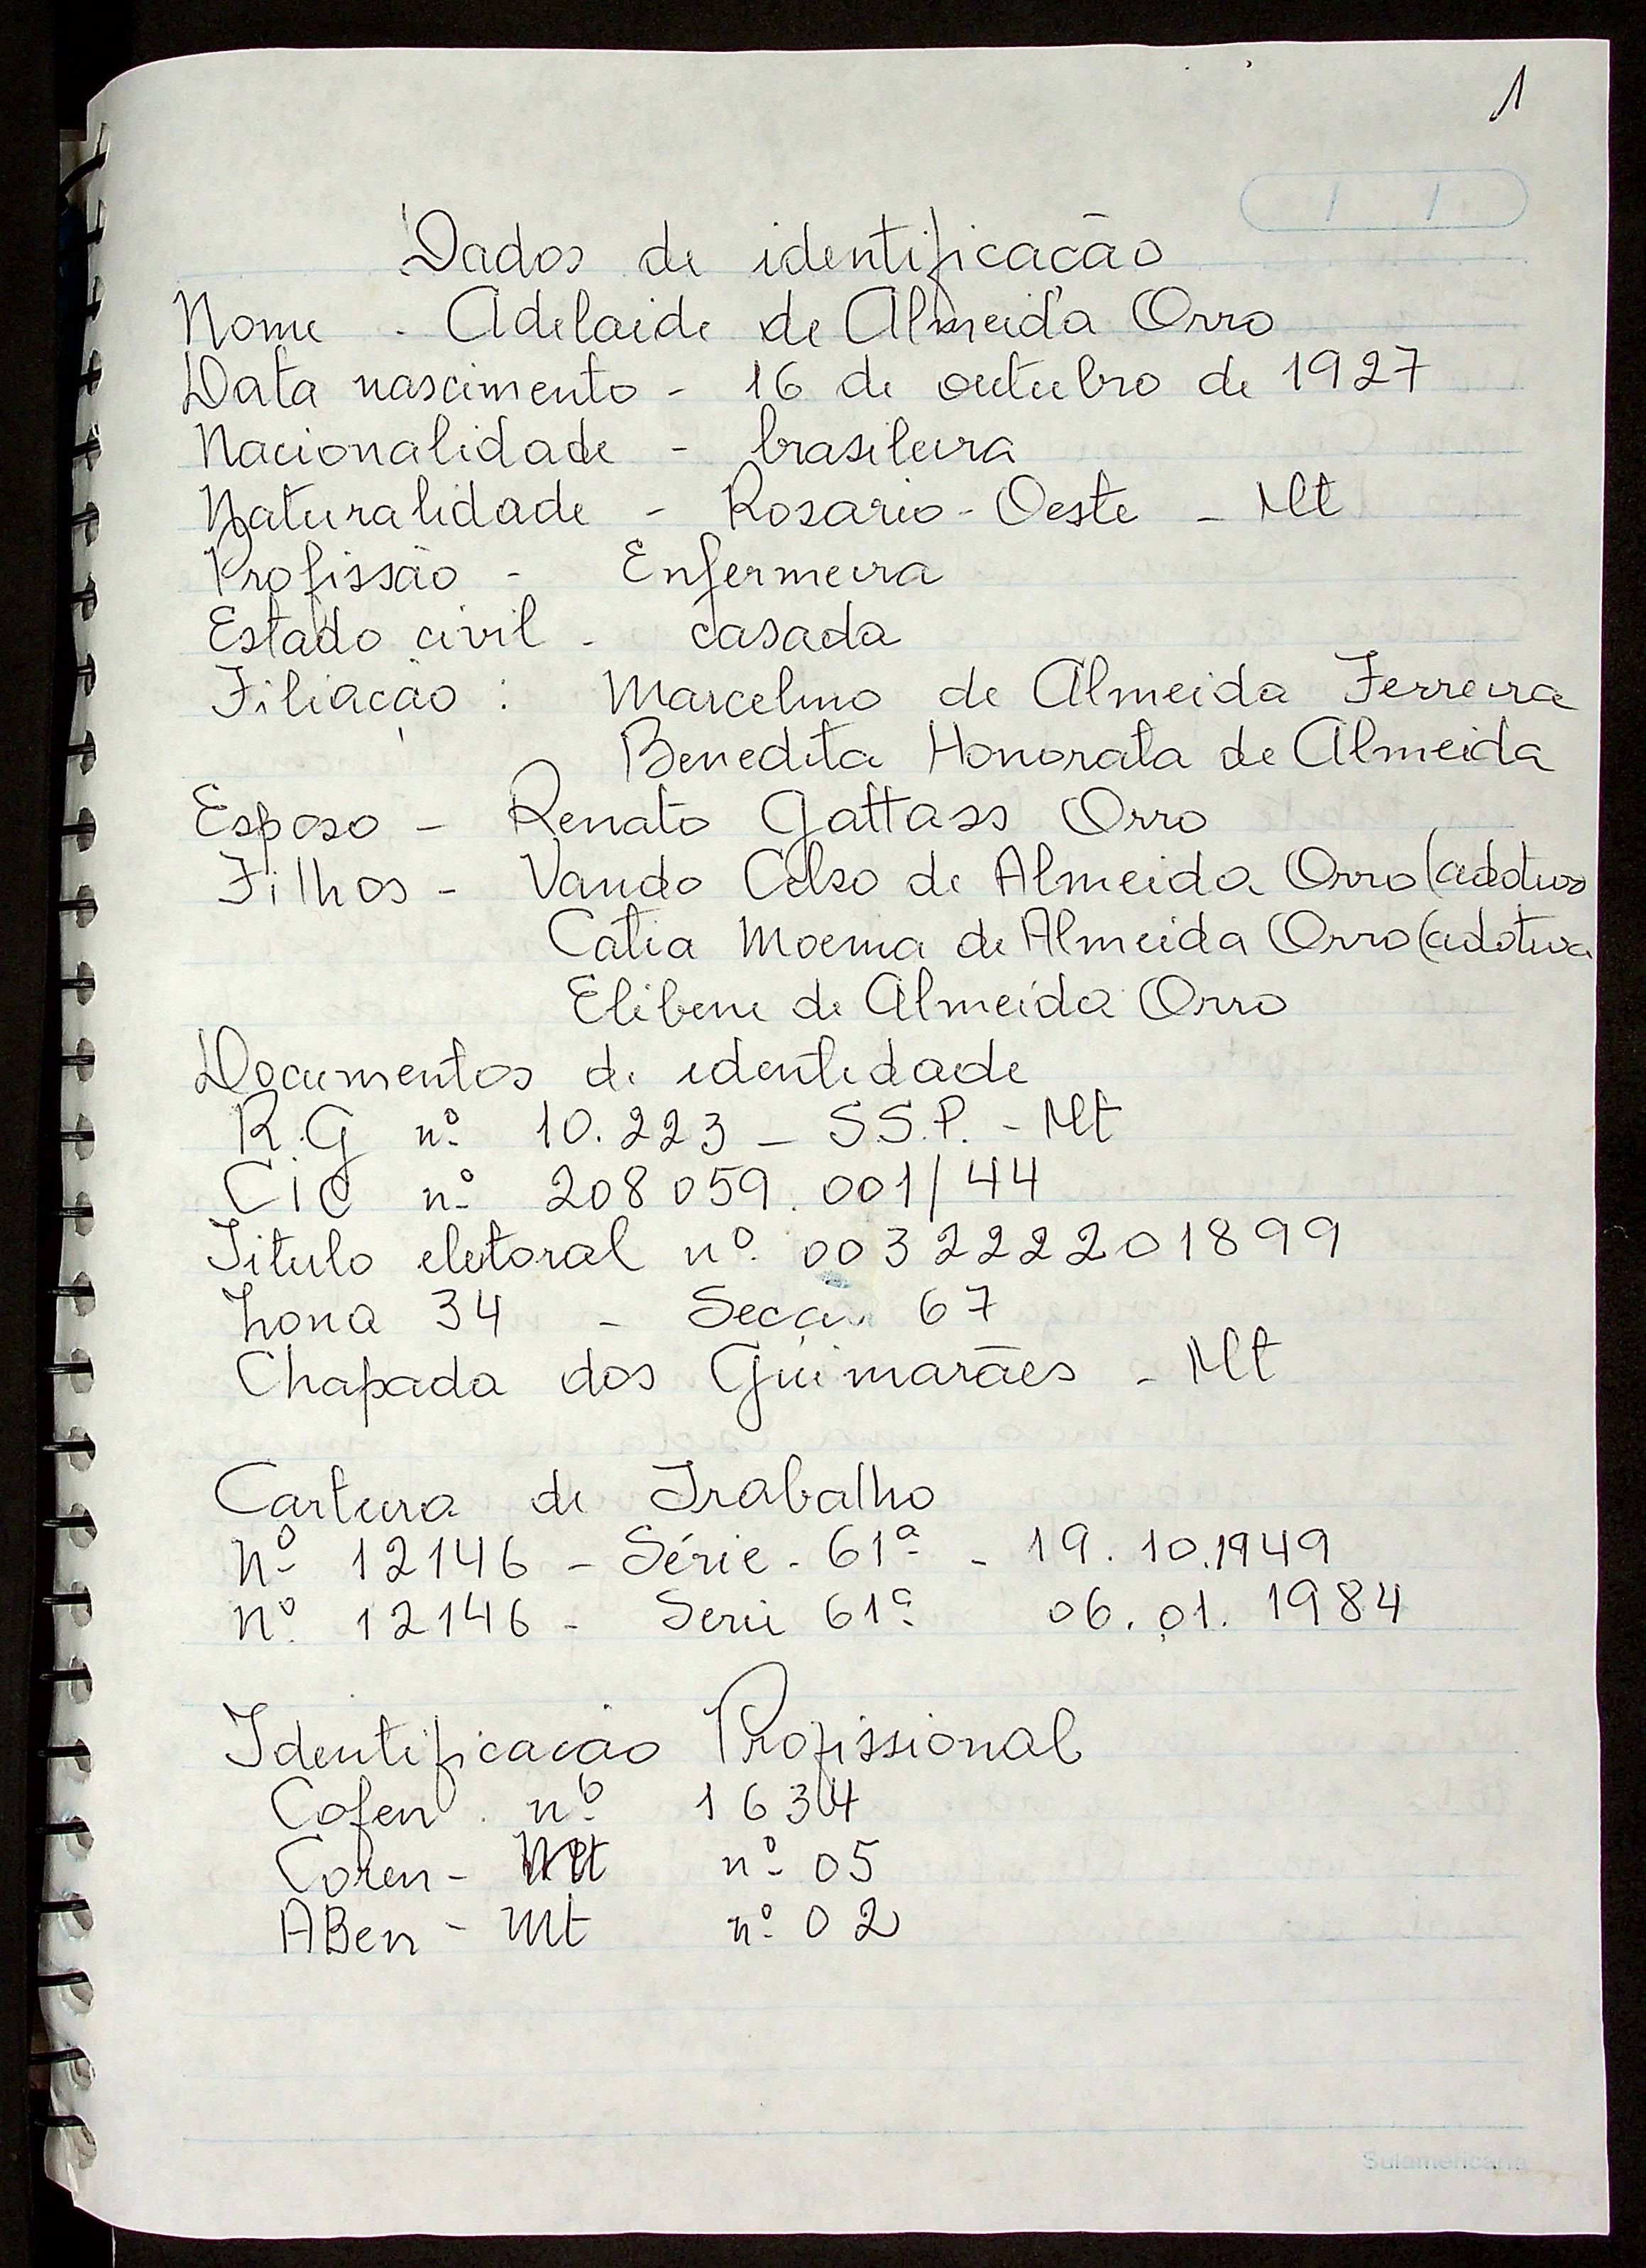 1
Dados de identificacão
Nome - Adelaide de Almeida Orro
Data nascimento - 16 de outubro de 1927
Nacionalidade - brasileira
Naturalidade - Rosario-Oeste - Mt
Profissão - Enfermeira
Estado civil - casada
Filiação : Marcelino de Almeida Ferreira
Benedita Honorata de Almeida
Esposo - Renato Gattass Orro
Filhos - Vando Celso de Almeida Orro (adotivo
Catia Moema de Almeida Orro (adotiva
Elibene de Almeida Orro
Documentos de identidade
R.G nº 10.223 - S.S.P. - Mt
CiC nº 208059.001/44
Titulo eleitoral nº 003222201899
Zona 34 - Seça 67
Chapada dos Guimarães - Mt
Carteira de Trabalho
Nº 12146 - Série - 61ª - 19.10.1949
Nº 12146 - Serie 61ª 06.01.1984
Identificacão Profissional
Cofen nº 1634
Coren - Mt nº 05
ABen - Mt nº 02
Sulamericana